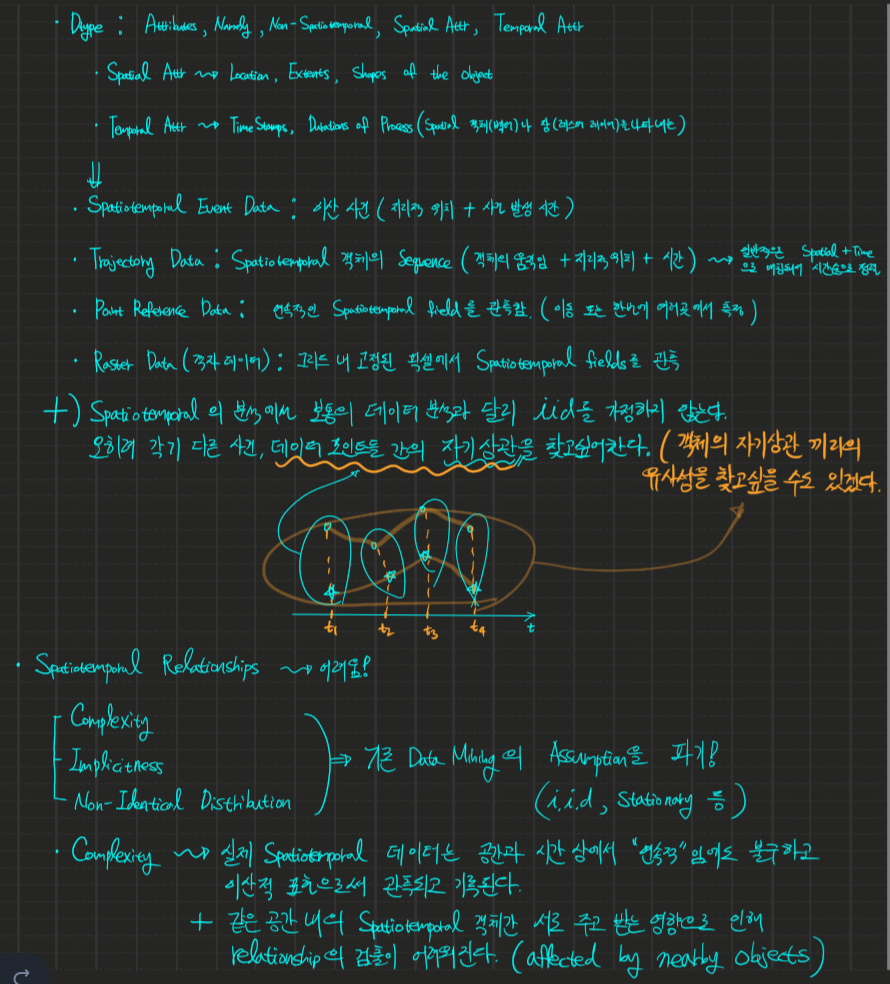 · Dtype : Attributes, Namely, Non-Spatiotemporal, Spatial Attr, Temporal Attr
· Spatial Attr ~> Location, Extents, Shapes of the object
· Temporal Attr ~> TimeStamps, Durations of Process (Spatial 객체(벡터)나 장(래스터 레이어)를 나타내는)
⇓
· Spatiotemporal Event Data : 이산 사건 (지리적 위치 + 사건 발생 시간)
· Trajectory Data : Spatiotemporal 객체의 Sequence (객체의 움직임 + 지리적 위치 + 시간) ~> 일반적으로 Spatial + Time
으로 매칭되어 시간순으로 정렬
· Point Reference Data : 연속적인 Spatiotemporal field를 관측함. (이동 또는 한번에 여러곳에서 측정)
· Raster Data (격자 데이터) : 그리드 내 고정된 픽셀에서 Spatiotemporal fields를 관측
+) Spatiotemporal 의 분석에서 보통의 데이터 분석과 달리 iid를 가정하지 않는다.
오히려 각기 다른 사건, 데이터 포인트들 간의 자기상관을 찾고싶어한다. ( 객체의 자기상관 끼리의
유사성을 찾고싶을 수도 있겠다.
t₁ t₂ t₃ t₄ t
· Spatiotemporal Relationships ~> 어려움!
Complexity
Implicitness
Non-Identical Distribution
⇒ 기존 Data Mining의 Assumption을 파기!
(i.i.d, Stationary 등)
· Complexity ~> 실제 Spatiotemporal 데이터는 공간과 시간 상에서 "연속적"임에도 불구하고
이산적 표현으로써 관측되고 기록된다.
+ 같은 공간 내의 Spatiotemporal 객체간 서로 주고 받는 영향으로 인해
relationship의 검출이 어려워진다. (affected by nearby objects)